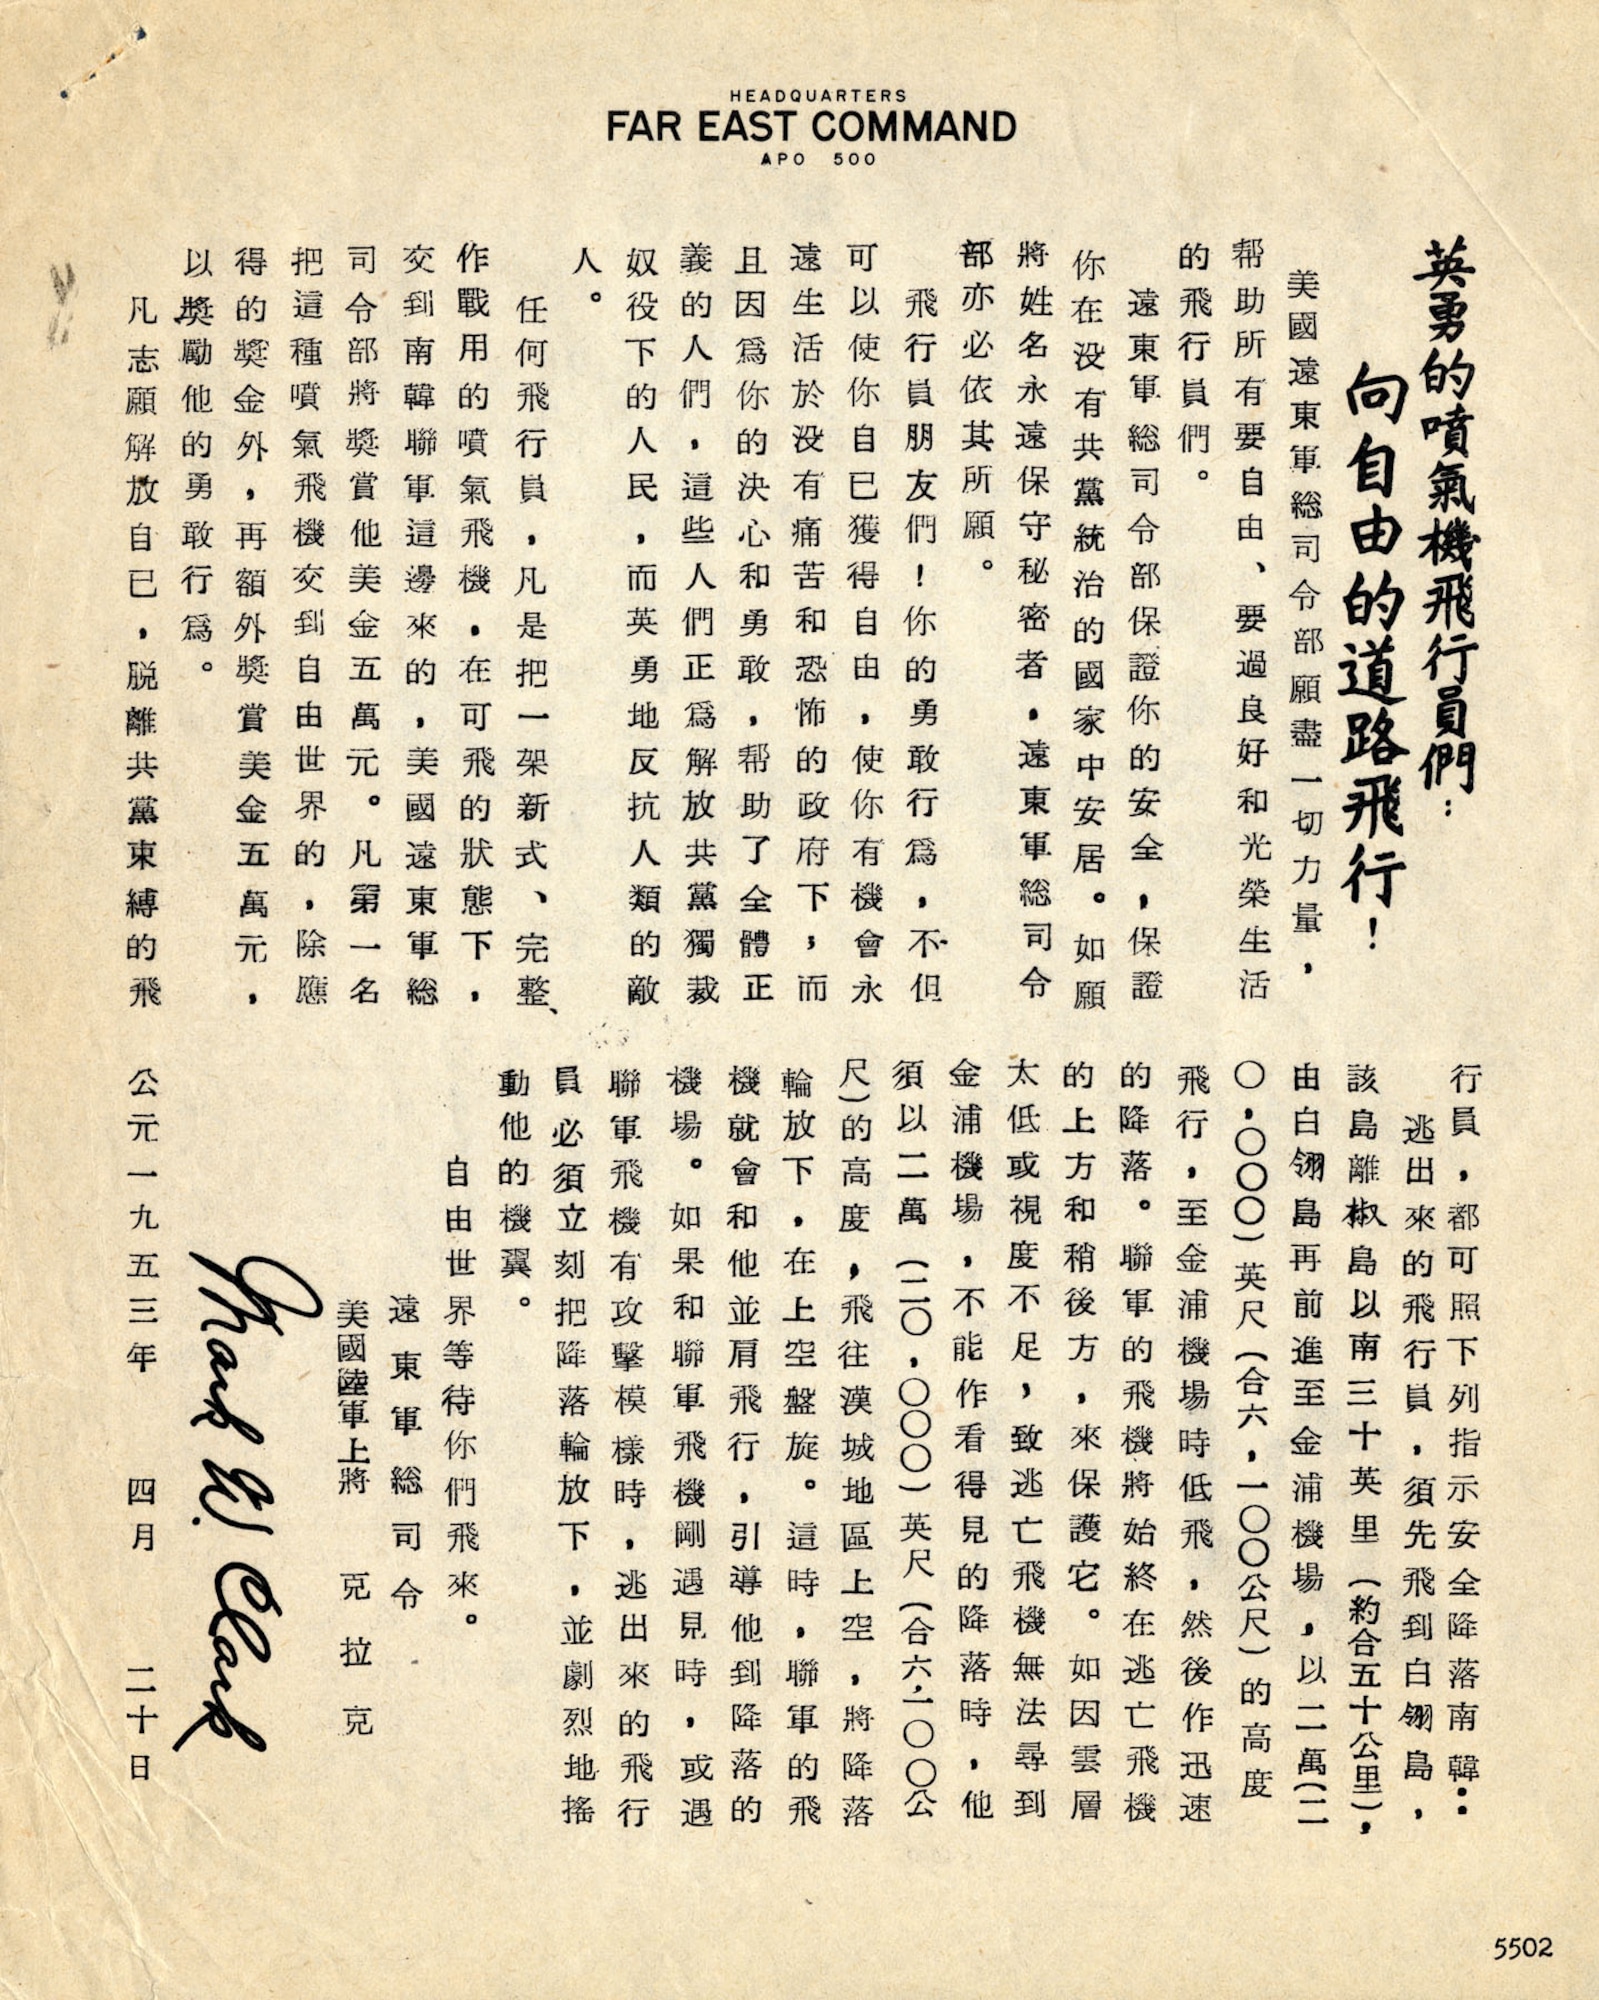 HEADQUARTERS
FAR EAST COMMAND
APO 500
英勇的噴氣機飛行員們：
向自由的道路飛行！
美國遠東軍総司令部願盡一切力量，
帮助所有要自由、要過良好和光榮生活
的飛行員們。
遠東軍総司令部保證你的安全，保證
你在没有共黨統治的國家中安居。如願
將姓名永遠保守秘密者，遠東軍総司令
部亦必依其所願。
飛行員朋友們！你的勇敢行爲，不但
可以使你自已獲得自由，使你有機會永
遠生活於没有痛苦和恐怖的政府下，而
且因爲你的決心和勇敢，帮助了全體正
義的人們，這些人們正爲解放共黨獨裁
奴役下的人民，而英勇地反抗人類的敵
人。
任何飛行員，凡是把一架新式、完整、
作戰用的噴氣飛機，在可飛的狀態下，
交到南韓聯軍這邊來的，美國遠東軍総
司令部將獎賞他美金五萬元。凡第一名
把這種噴氣飛機交到自由世界的，除應
得的獎金外，再額外獎賞美金五萬元，
以獎勵他的勇敢行爲。
凡志願解放自已，脱離共黨束縛的飛
行員，都可照下列指示安全降落南韓：
逃出來的飛行員，須先飛到白翎島，
該島離椒島以南三十英里（約合五十公里），
由白翎島再前進至金浦機場，以二萬（二
〇，〇〇〇）英尺（合六，一〇〇公尺）的高度
飛行，至金浦機場時低飛，然後作迅速
的降落。聯軍的飛機將始終在逃亡飛機
的上方和稍後方，來保護它。如因雲層
太低或視度不足，致逃亡飛機無法尋到
金浦機場，不能作看得見的降落時，他
須以二萬（二〇，〇〇〇）英尺（合六，一〇〇公
尺）的高度，飛往漢城地區上空，將降落
輪放下，在上空盤旋。這時，聯軍的飛
機就會和他並肩飛行，引導他到降落的
機場。如果和聯軍飛機剛遇見時，或遇
聯軍飛機有攻擊模樣時，逃出來的飛行
員必須立刻把降落輪放下，並劇烈地搖
動他的機翼。
自由世界等待你們飛來。
遠東軍総司令
美國陸軍上將 克拉克
Mark W. Clark
公元一九五三年 四月 二十日
5502